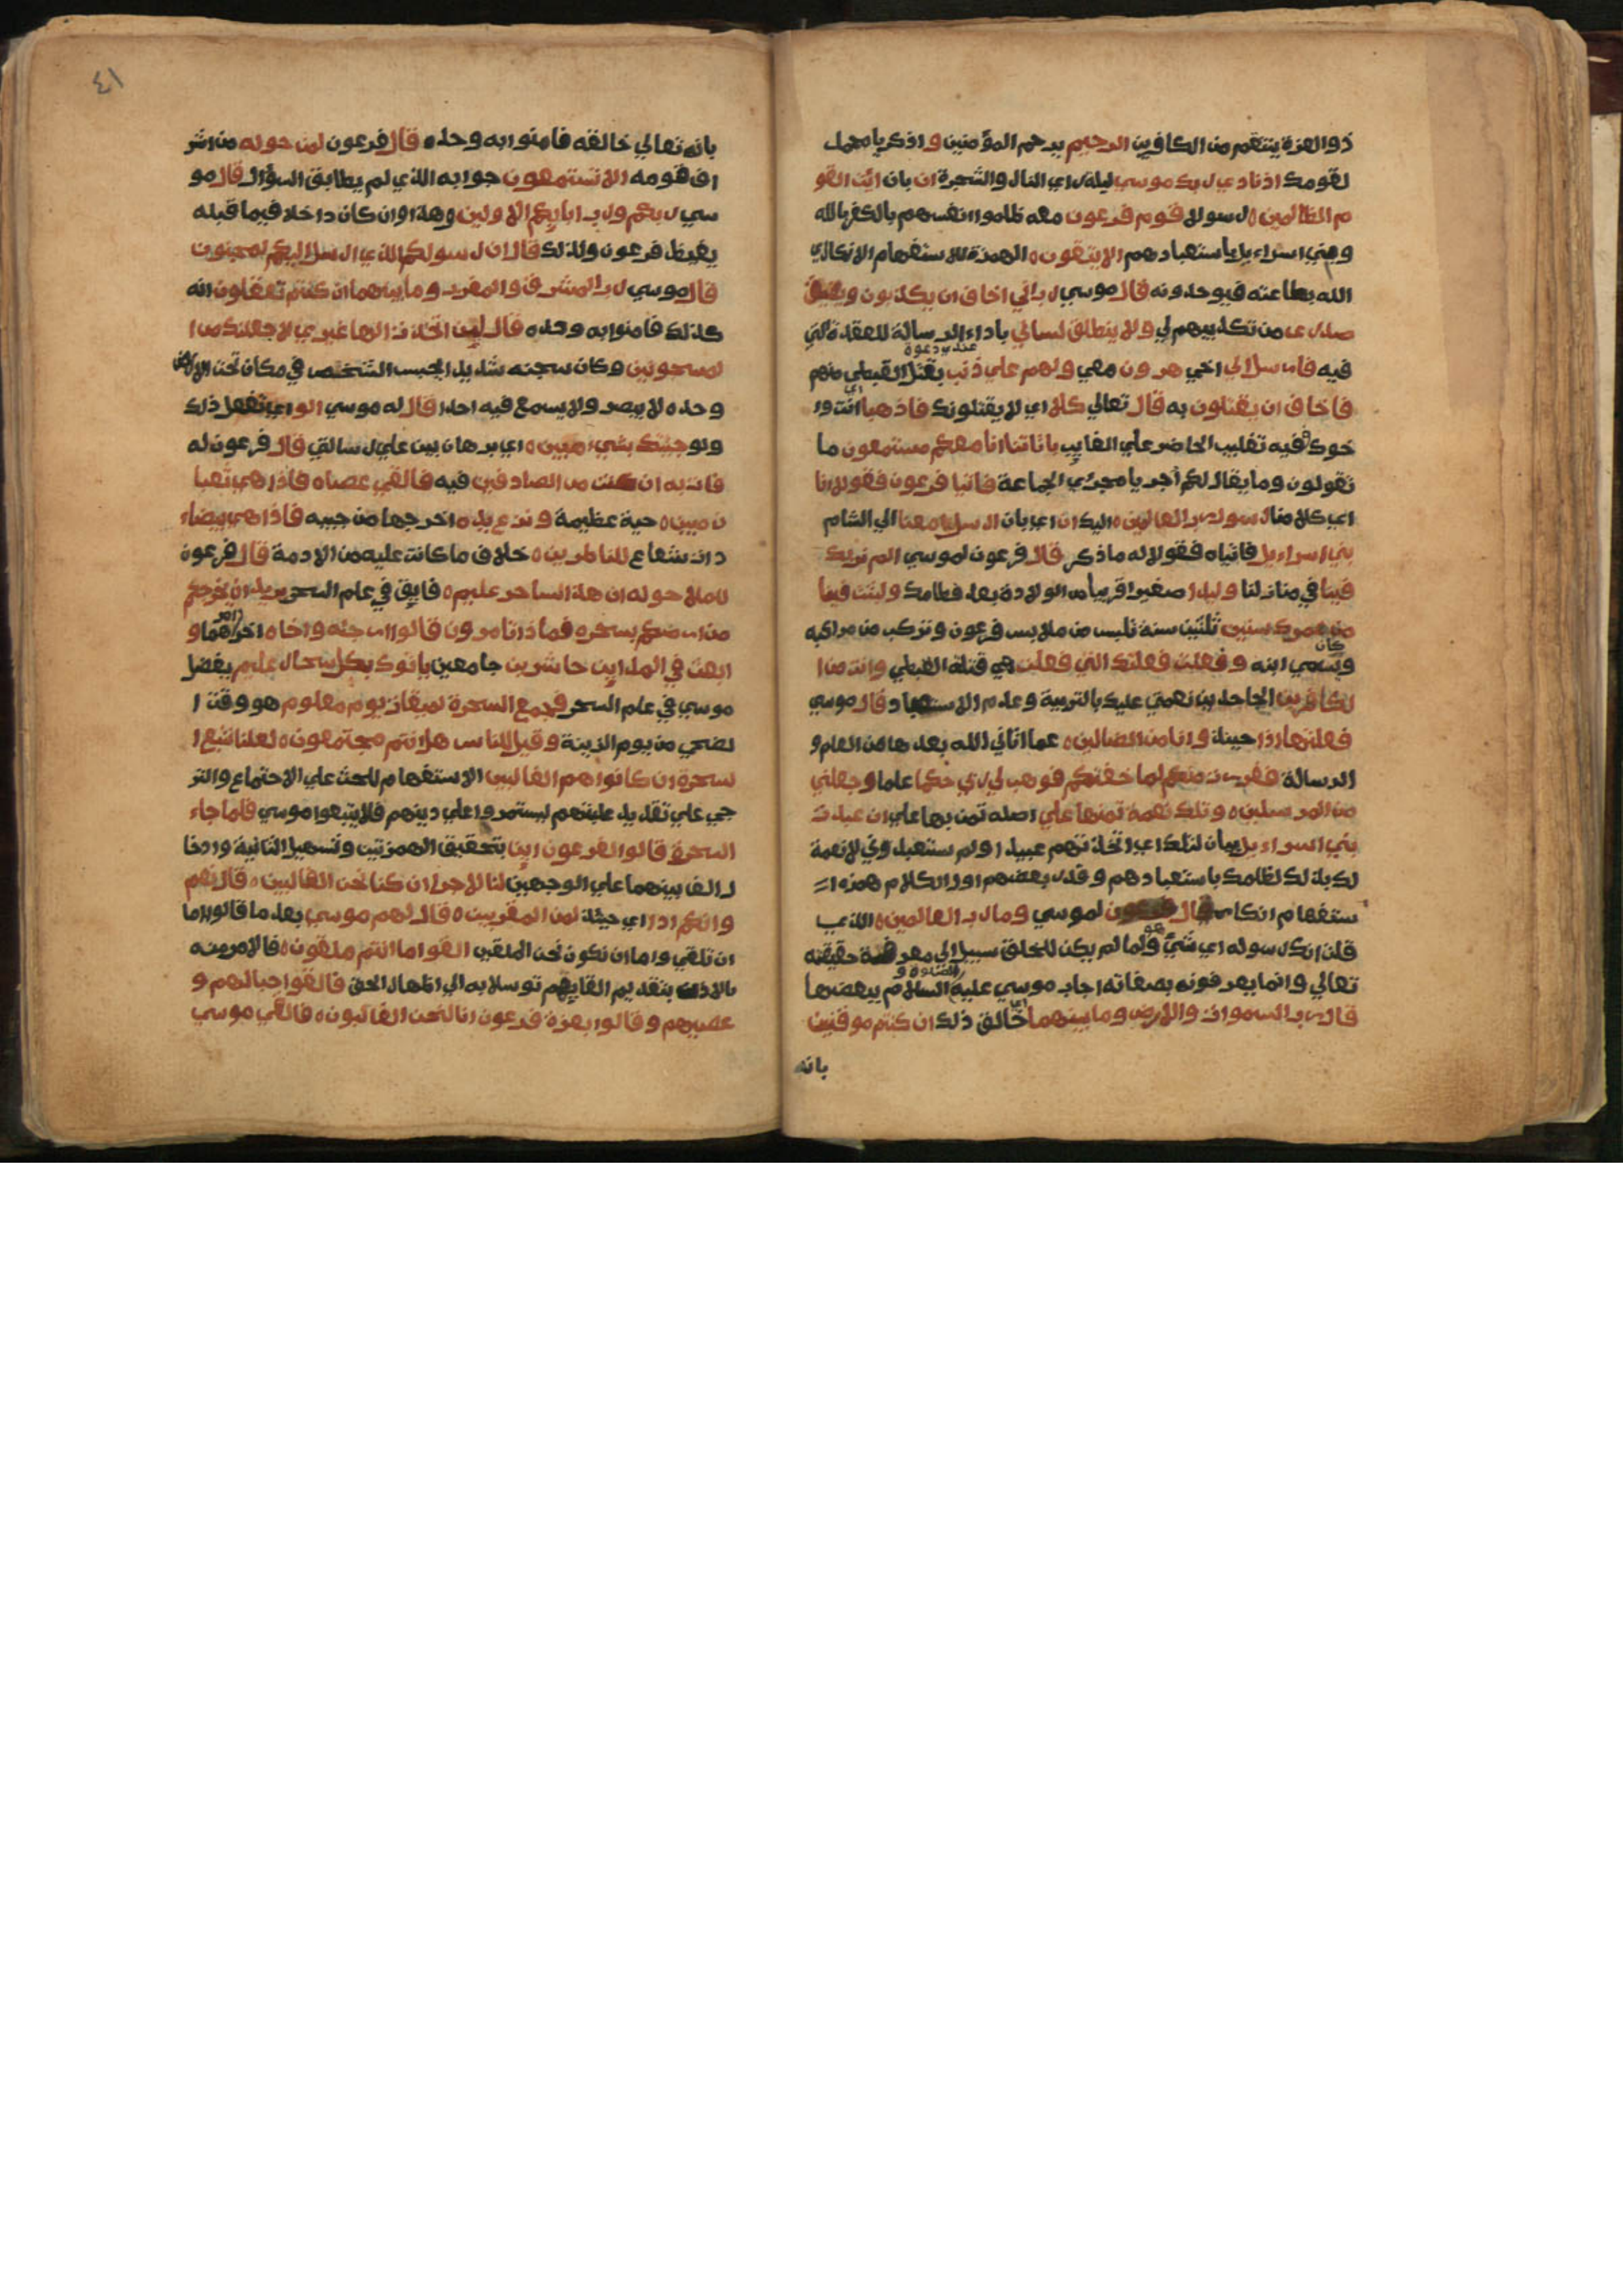 ذو العزة ينتقم من الكافرين الرحيم يرحم المؤمنين و اذكر يا محمد
لقومك اذ نادي ربك موسي ليلة راي النار والشجرة ان بان ائت القو
م الظالمين ه رسولا قوم فرعون معه ظلموا انفسهم بالكفر بالله
وبني اسراءيل باستعبادهم الا يتقون ه الهمزة للاستفهام الانكاري
الله بطاعته فيوحدونه قال موسي رب اني اخاف ان يكذبون ويضيق
صدري من تكذيبهم لي ولا ينطلق لساني باداء الرسالة للعقدة التي
فيه فارسل الي اخي هرون معي ولهم علي ذنب بقتل القبطي منهم
فاخاف ان يقتلون به قال تعالي كلا اي لا يقتلونك فاذهبا اي انت وا
خوك ففيه تغليب الحاضر علي الغايب باياتنا انا معكم مستمعون ما
تقولون وما يقال لكم أجريا مجري الجماعة فاتيا فرعون فقولا انا
اي كلا منا رسول رب العالمين ه اليك ان اي بان ارسل معنا الي الشام
بني اسراءيل فاتياه فقولا له ما ذكر قال فرعون لموسي الم نربك
فينا في منازلنا وليدا صغيرا قريبا من الولادة بعد فطامك ولبثت فينا
من عمرك سنين ثلثين سنة تلبس من ملابس فرعون وتركب من مراكبه
وكان يسمي ابنه و فعلت فعلتك التي فعلت هي قتله القبطي وانت من ا
لكافرين الجاحدين نعمتي عليك بالتربية وعدم الاستعباد قال موسي
فعلتها اذا حينئذ وانا من الضالين ه عما اتاني الله بعدها من العلم و
الرسالة ففررت منكم لما خفتكم فوهب لي ربي حكما علما وجعلني
من المرسلين ه وتلك نعمة تمنها علي اصله تمن بها علي ان عبدت
بني اسراءيل بيان لتلك اي اتخذتهم عبيدا ولم تستعبدوني لا نعمة
لك بذلك لظلمك باستعبادهم وقدر بعضهم اول الكلام همزة ا
ستفهام انكار قال فرعون لموسي وما رب العالمين ه الذي
قلت انك رسوله اي شيء هو ولما لم يكن للخلق سبيل الي معرفة حقيقته
تعالي وانما يعرفونه بصفاته اجاب موسي عليه الصلوة و السلام ببعضها
قال رب السموات والارض وما بينهما اي خالق ذلك ان كنتم موقنين
بانه
٤١
بانه تعالي خالقه فامنوا به وحده قال فرعون لمن حوله من اشر
اف قومه الا تستمعون جوابه الذي لم يطابق السؤال قال مو
سي ربكم ورب ابايكم الاولين وهذا وان كان داخلا فيما قبله
يغيظ فرعون ولذلك قال ان رسولكم الذي ارسل اليكم لمجنون
قال موسي رب المشرق والمغرب وما بينهما ان كنتم تعقلون انه
كذلك فامنوا به وحده قال لئن اتخذت الها غيري لاجعلنك من ا
لمسجونين وكان سجنه شديدا يحبس الشخص في مكان تحت الارض
وحده لا يبصر ولا يسمع فيه احدا قال له موسي اولو اي تفعل ذلك
ولو جئتك بشيء مبين ه اي برهان بين علي رسالتي قال فرعون له
فات به ان كنت من الصادقين فيه فالقي عصاه فاذا هي ثعبا
ن مبين ه حية عظيمة ونزع يده اخرجها من جيبه فاذا هي بيضاء
ذات شعاع للناظرين ه خلاف ما كانت عليه من الادمة قال فرعون
للملا حوله ان هذا لساحر عليم ه فايق في علم السحر يريد ان يخرجكم
من ارضكم بسحره فماذا تامرون قالوا ارجئه واخاه اخر امرهما و
ابعث في المداين حاشرين جامعين ياتوك بكل سحار عليم يفضل
موسي في علم السحر فجمع السحرة لميقات يوم معلوم هو وقت ا
لضحي من يوم الزينة وقيل للناس هل انتم مجتمعون ه لعلنا نتبع ا
لسحرة ان كانوا هم الغالبين الاستفهام للحث علي الاجتماع والتر
جي علي تقدير غلبتهم ليستمروا علي دينهم فلا يتبعوا موسي فلما جاء
السحرة قالوا لفرعون اين بتحقيق الهمزتين وتسهيل الثانية وادخا
ل الف بينهما علي الوجهين لنا لاجرا ان كنا نحن الغالبين ه قال نعم
وانكم اذا اي حينئذ لمن المقربين ه قال لهم موسي بعد ما قالوا اما
ان تلقي واما ان نكون نحن الملقين القوا ما انتم ملقون ه فالامر منه
بالاذن بتقديم القايهم توسلا به الي اظهار الحق فالقوا حبالهم و
عصيهم وقالوا بعزة فرعون انا لنحن الغالبون ه فالقي موسي